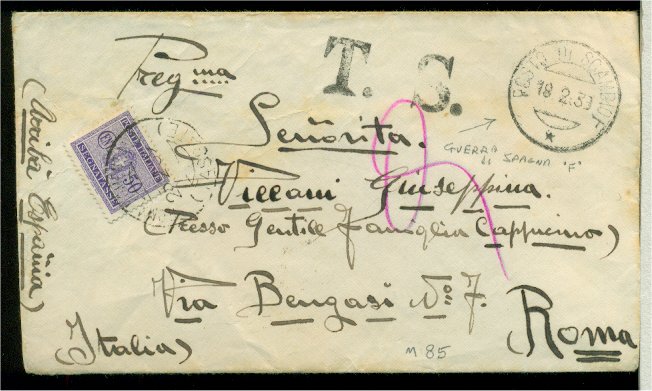 T. S.
Preg.ma
Señorita.
Villani Giuseppina.
(Presso Gentile Famiglia Cappucino)
Via Bengasi No 7.
Roma
Italia)
(Arriba España)
POSTA DI SCAMBIO F
18.2.39
GUERRA
di SPAGNA "F"
50
M 85